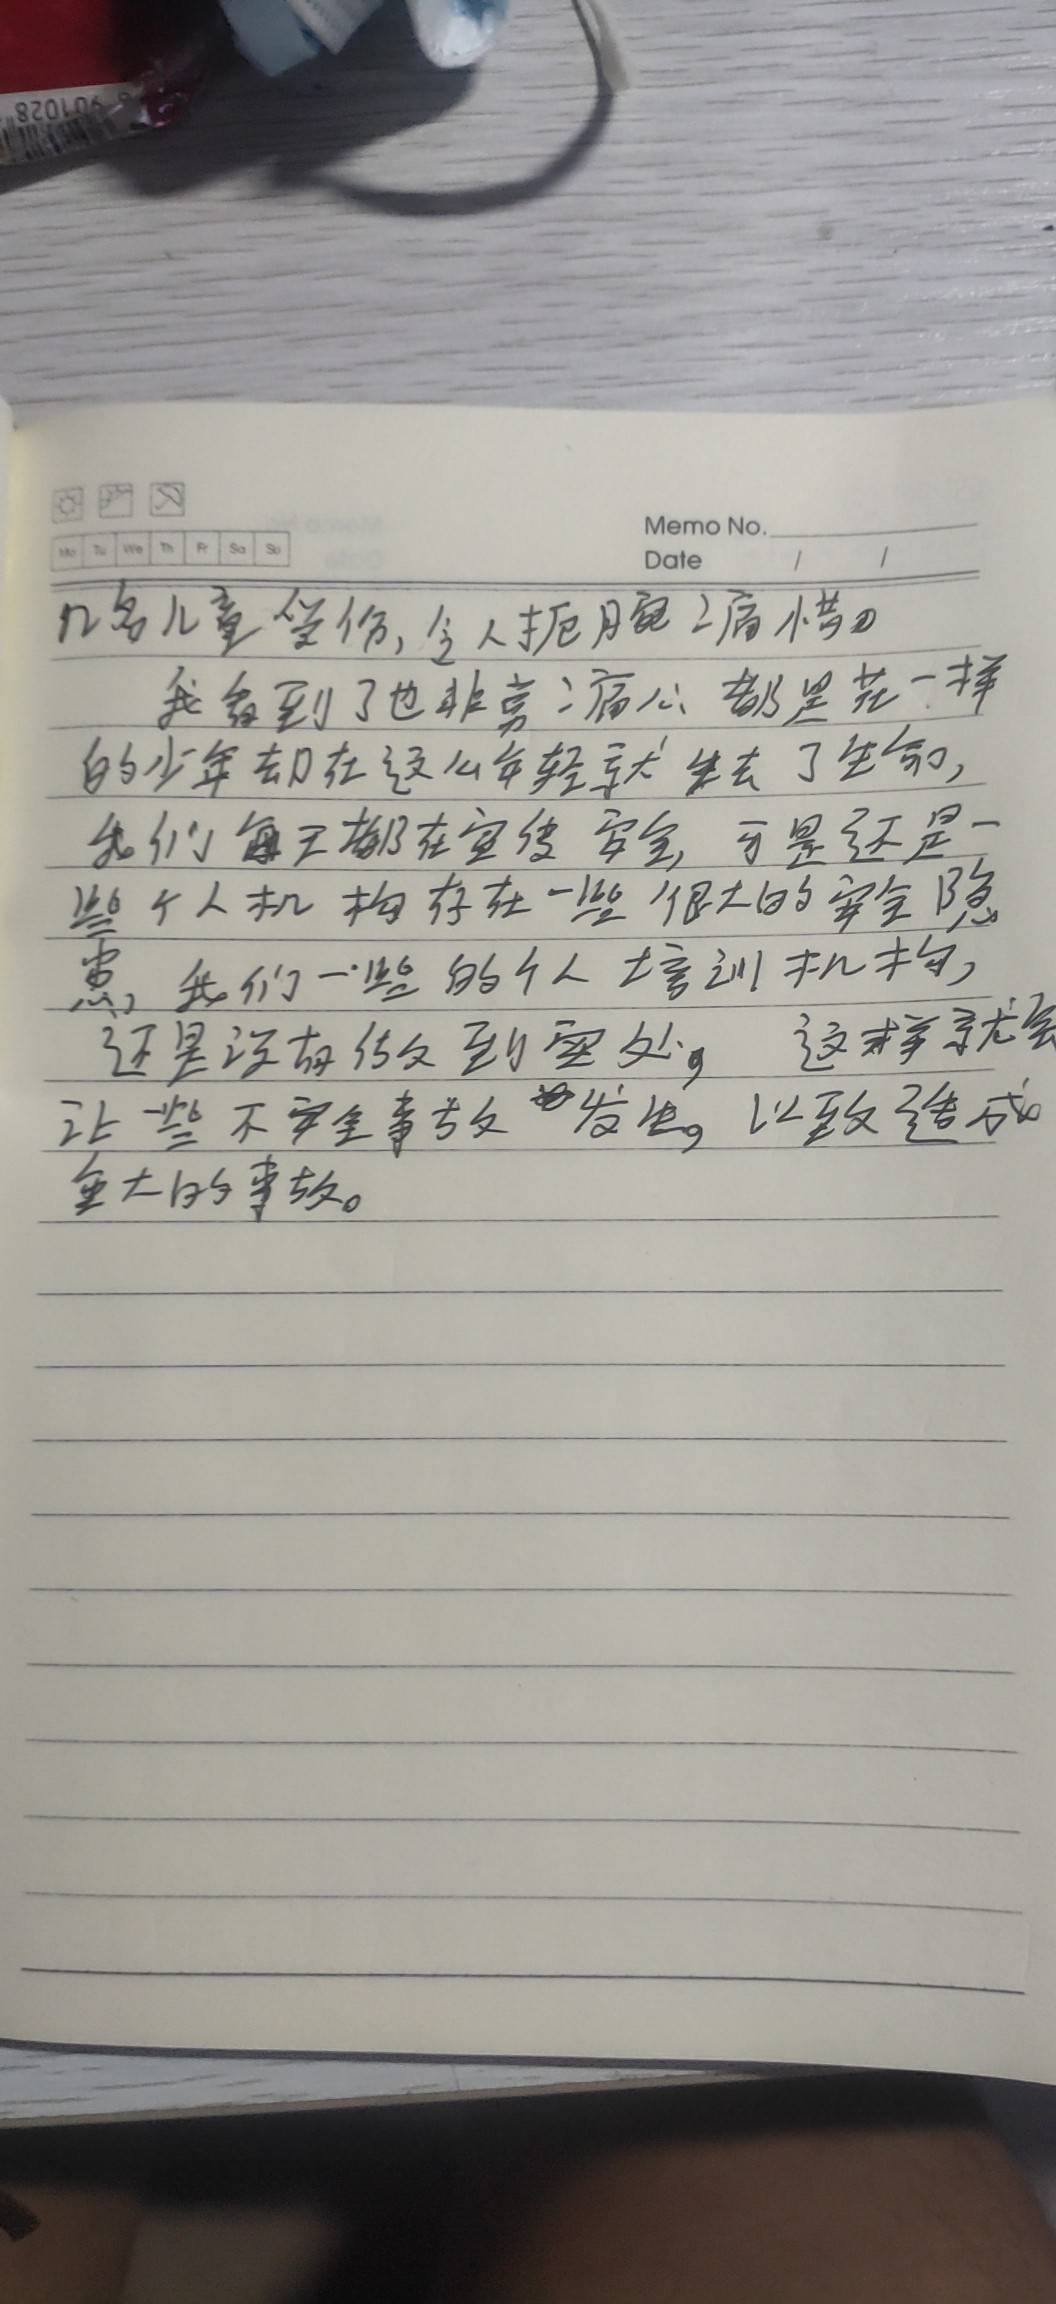 901028
Mo Tu We Th Fr Sa Su
Memo No.
Date / /
几名儿童受伤,令人扼腕痛惜。
我看到了也非常痛心 都是花一样
的少年却在这么年轻就失去了生命,
我们每天都在宣传 安全,可是还是一
些个人机构存在一些很大的安全隐
患,我们一些的个人培训机构,
还是没有传改到实处, 这样就会
让一些不安全事故 发生。以致造成
重大的事故。